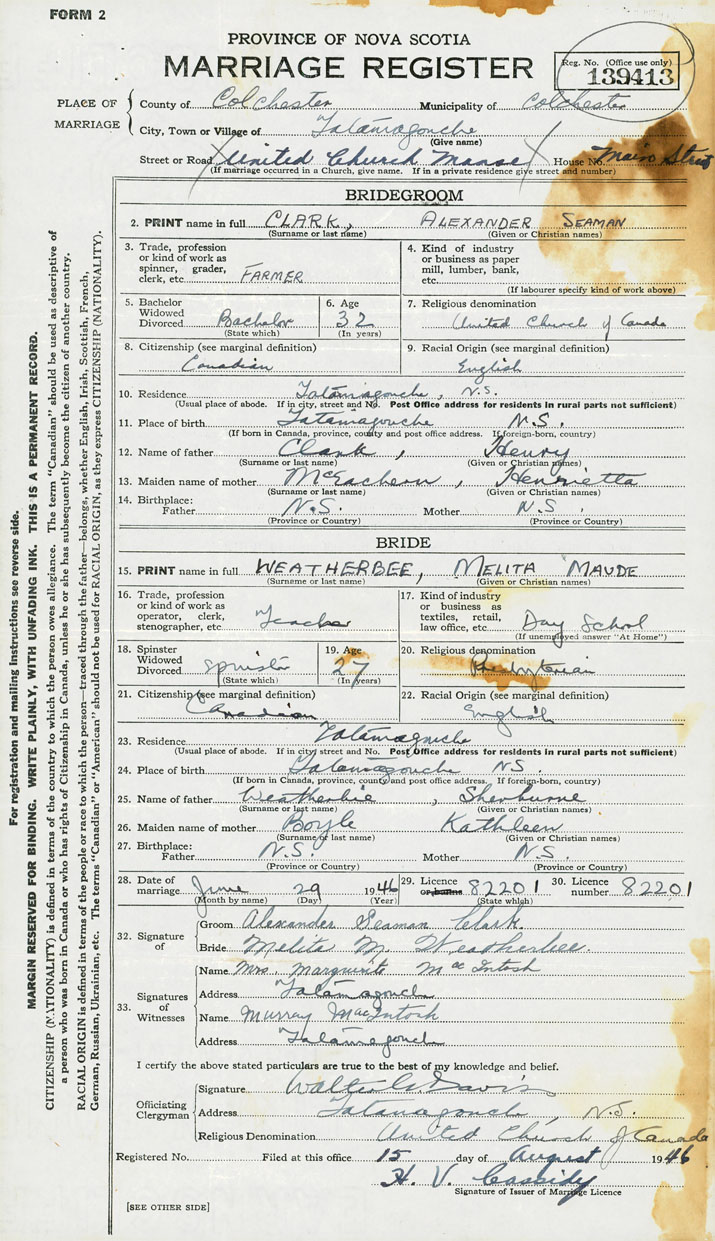 FORM 2
PROVINCE OF NOVA SCOTIA
MARRIAGE REGISTER
Reg. No. (Office use only)
139413
PLACE OF MARRIAGE
County of Colchester Municipality of Colchester
City, Town or Village of Tatamagouche
(Give name)
Street or Road United Church Manse House No. Main Street
(If marriage occurred in a Church, give name. If in a private residence give street and number)
BRIDEGROOM
2. PRINT name in full CLARK, ALEXANDER SEAMAN
(Surname or last name) (Given or Christian names)
3. Trade, profession or kind of work as spinner, grader, clerk, etc. FARMER
4. Kind of industry or business as paper mill, lumber, bank, etc.
(If labourer specify kind of work above)
5. Bachelor Widowed Divorced Bachelor
(State which)
6. Age 32
(In years)
7. Religious denomination
United Church of Canada
8. Citizenship (see marginal definition)
Canadian
9. Racial Origin (see marginal definition)
English
10. Residence Tatamagouche, N.S.
(Usual place of abode. If in city, street and No. Post Office address for residents in rural parts not sufficient)
11. Place of birth Tatamagouche N.S.
(If born in Canada, province, county and post office address. If foreign-born, country)
12. Name of father Clark, Henry
(Surname or last name) (Given or Christian names)
13. Maiden name of mother McEachern, Henrietta
(Surname or last name) (Given or Christian names)
14. Birthplace:
Father N.S. Mother N.S.
(Province or Country) (Province or Country)
BRIDE
15. PRINT name in full WEATHERBEE, MELITA MAUDE
(Surname or last name) (Given or Christian names)
16. Trade, profession or kind of work as operator, clerk, stenographer, etc. Teacher
17. Kind of industry or business as textiles, retail, law office, etc. Day School
(If unemployed answer "At Home")
18. Spinster Widowed Divorced Spinster
(State which)
19. Age 27
(In years)
20. Religious denomination
Presbyterian
21. Citizenship (see marginal definition)
Canadian
22. Racial Origin (see marginal definition)
English
23. Residence Tatamagouche
(Usual place of abode. If in city, street and No. Post Office address for residents in rural parts not sufficient)
24. Place of birth Tatamagouche N.S.
(If born in Canada, province, county and post office address. If foreign-born, country)
25. Name of father Weatherbie, Sherburne
(Surname or last name) (Given or Christian names)
26. Maiden name of mother Boyle Kathleen
(Surname or last name) (Given or Christian names)
27. Birthplace:
Father N.S. Mother N.S.
(Province or Country) (Province or Country)
28. Date of marriage June 29 1946 29. Licence or banns 82201 30. Licence number 82201
(Month by name) (Day) (Year) (State which)
32. Signature of
Groom Alexander Seaman Clark
Bride Melita M. Weatherbee.
33. Signatures of Witnesses
Name Mrs. Marguerite MacIntosh
Address Tatamagouche
Name Murray MacIntosh
Address Tatamagouche
I certify the above stated particulars are true to the best of my knowledge and belief.
Officiating Clergyman
Signature Walter G. Davis
Address Tatamagouche, N.S.
Religious Denomination United Church of Canada
Registered No. Filed at this office 15 day of August 1946
H. V. Cassidy
Signature of Issuer of Marriage Licence
[SEE OTHER SIDE]
For registration and mailing instructions see reverse side.
MARGIN RESERVED FOR BINDING. WRITE PLAINLY, WITH UNFADING INK. THIS IS A PERMANENT RECORD.
CITIZENSHIP (NATIONALITY) is defined in terms of the country to which the person owes allegiance. The term "Canadian" should be used as descriptive of
a person who was born in Canada or who has rights of Citizenship in Canada, unless he or she has subsequently become the citizen of another country.
RACIAL ORIGIN is defined in terms of the people or race to which the person—traced through the father—belongs, whether English, Irish, Scottish, French,
German, Russian, Ukrainian, etc. The terms "Canadian" or "American" should not be used for RACIAL ORIGIN, as they express CITIZENSHIP (NATIONALITY).